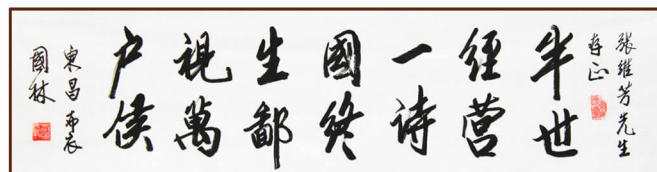 張維芳先生
存正
半世
經營
一詩
國終
生鄙
視萬
户侯
東昌布衣
國林